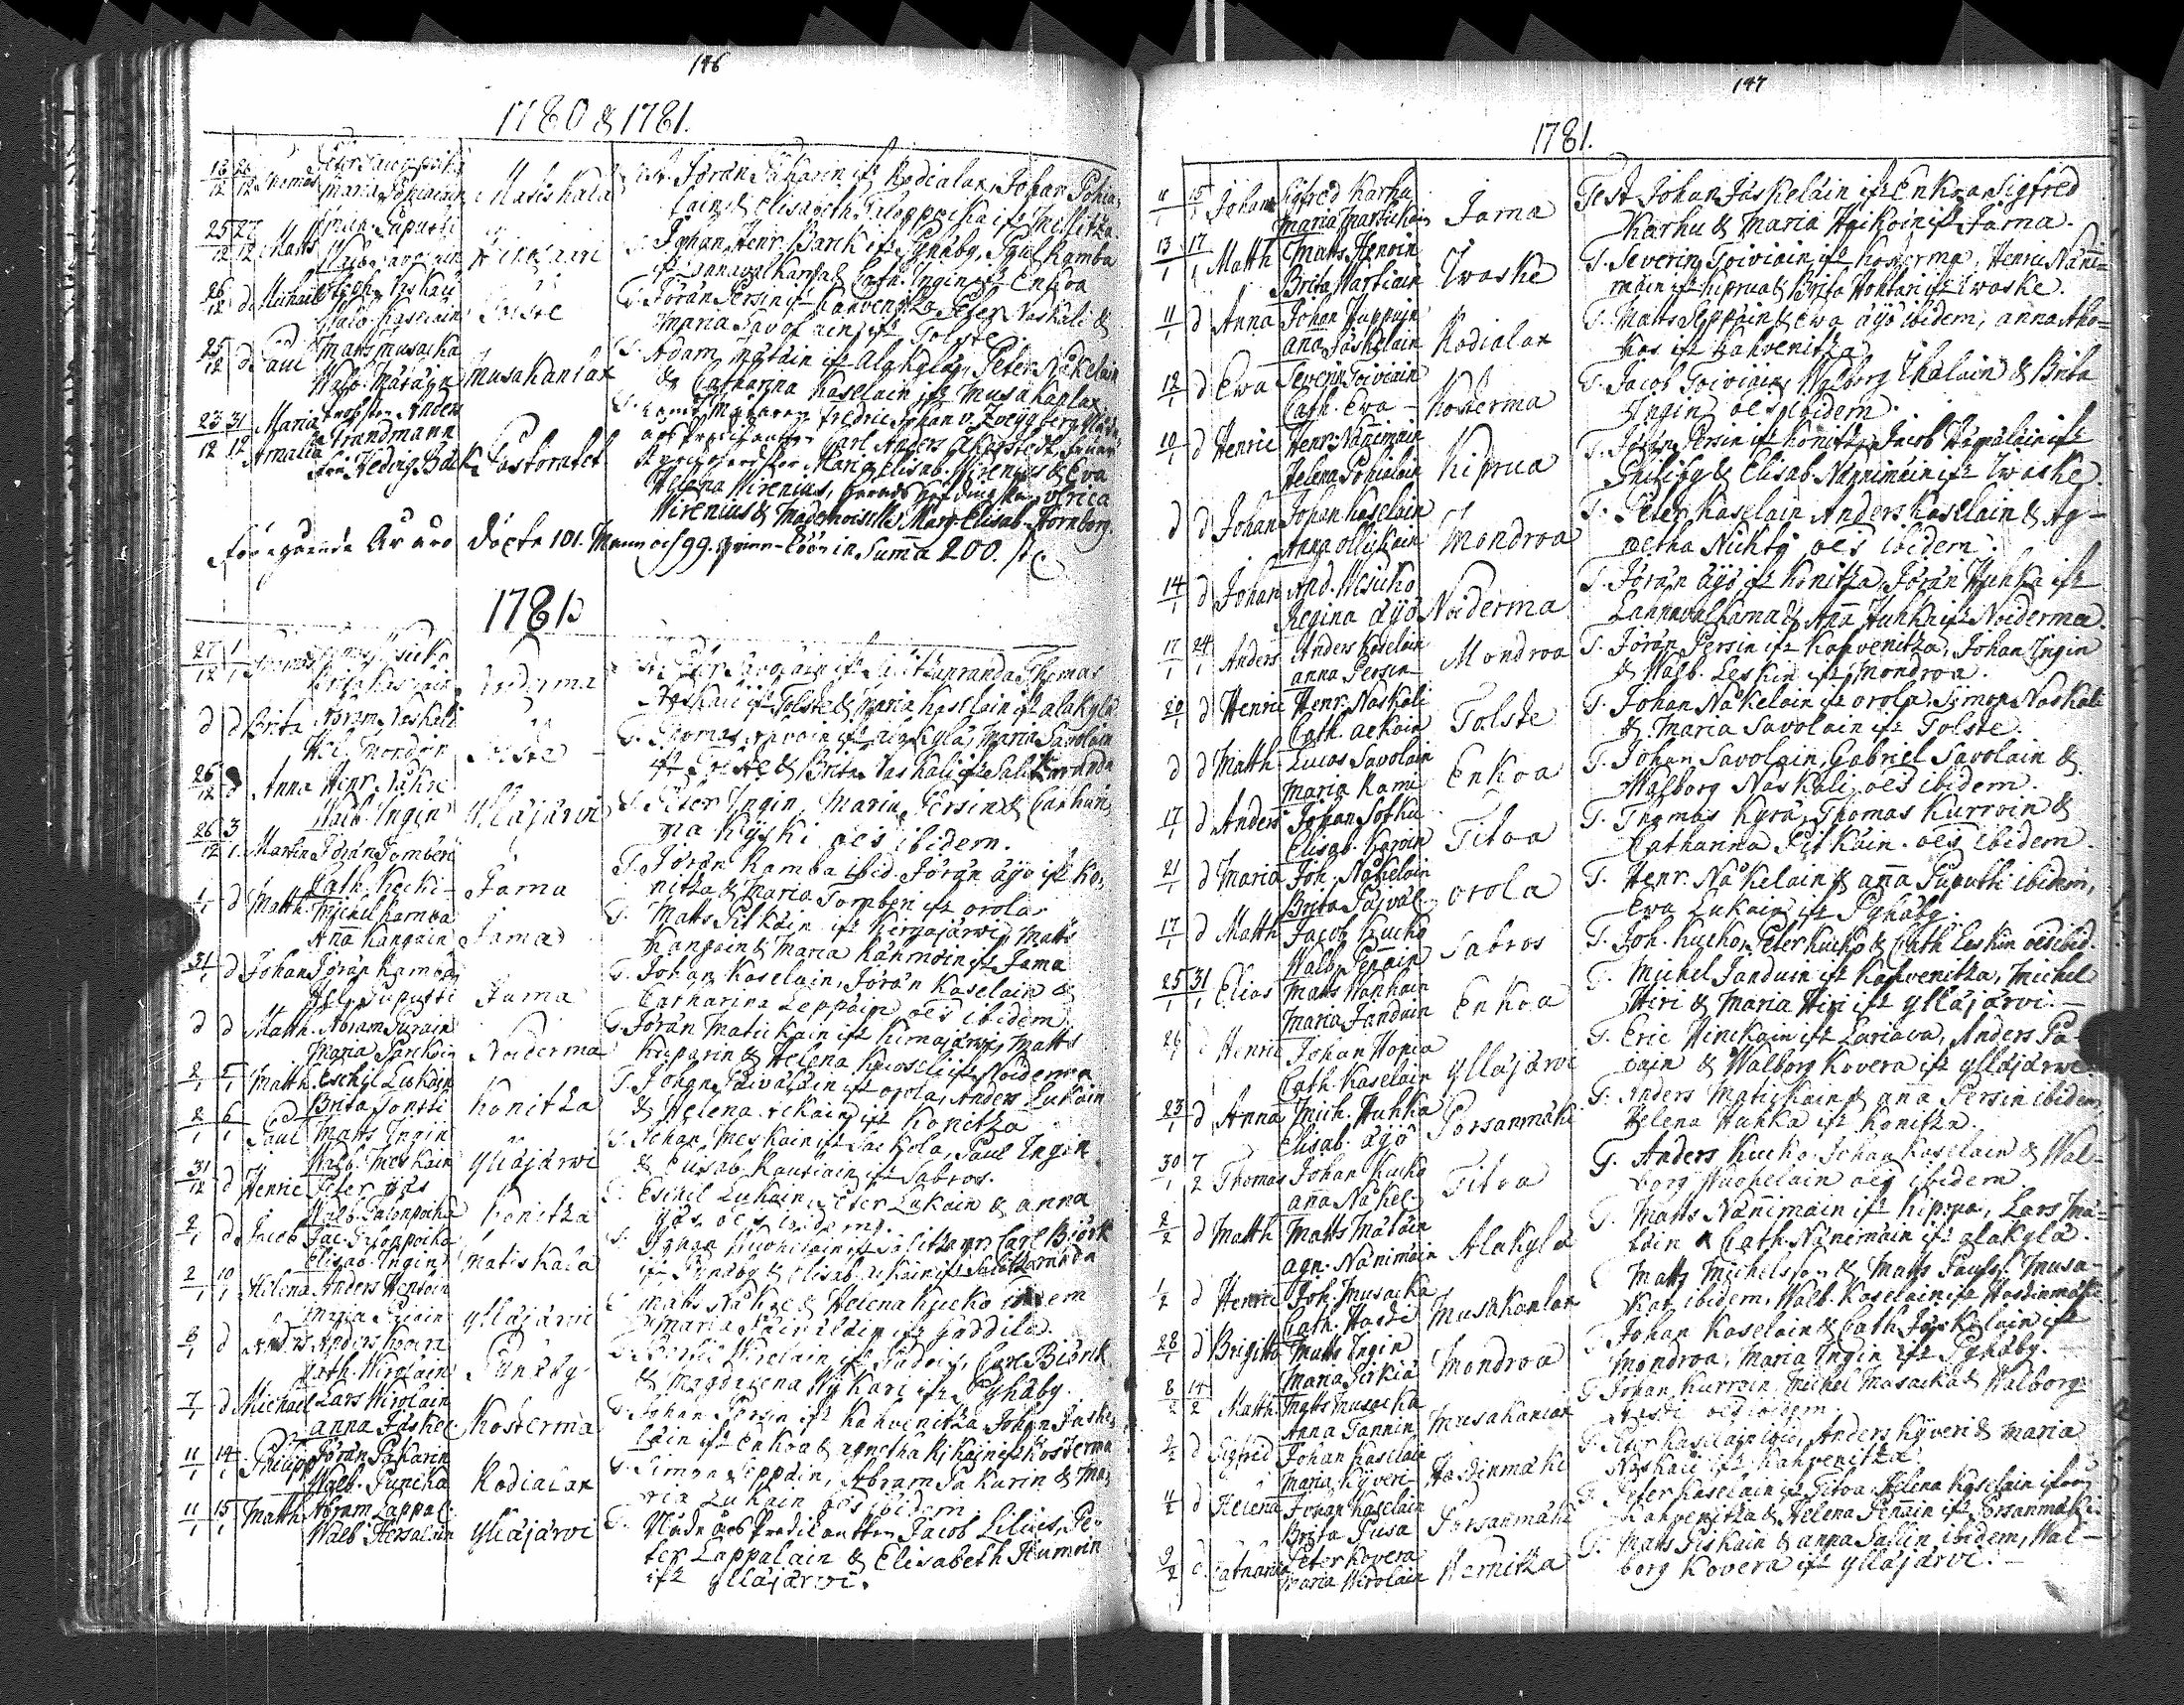 146
1780 & 1781.
13/12 26/12 Thomas
Maria Pohjalain Matiskala
Test. Jöran Pakarin ifr. Rodialax, Johan Pohia-
lain & Elisabeth Palonpoika ifr. Mellitza
25/12 27/12 Matts Puputti
Johan Henr. Barck ifr. Pyhäby, Paul Kamba
ifr. Lanavalkama & Cath. Ingin ifr. Enkoa
26/12 d Michael Naskali
Walb. Kaselain Tolste
T. Jöran Persin ifr. Kahvenitza, Peter Naskali &
Maria Savolain ifr. Tolste
25/12 d Paul Matts Musacka
Walb. Mataja Musakanlax
T. Adam Matain ifr. Alakylä, Peter Nåkelain
& Catharina Kaselain ifr. Musakanlax
23/12 31/12 Maria Amalia Probsten Anders
Strandmann
fru Hedvig Bäck Pastoratet
Fredric Johan v. Zveygberg, Nåde-
års Predikanten Carl Anders Åkerstedt, fruar
Maria Elisab. Wirenius & Eva
Helena Wirenius, Ulrica
Wirenius & Mademoiselle Marg. Elisab. Hornborg.
Föregående År äro döpta 101. Mann och 99. Qvinn-Köön in Summa 200. st.
1781.
27/12 1/1 Thomas
Brita Kaselain Noiderma
Peter Savolain ifr. Salitzanranda Thomas
Naskali ifr. Tolste & Maria Kaselain ifr. Alakylä
d d Brita Abram Naskali
Hel. Mondoin Tolste
T. Thomas ifr. Alakylä, Maria Savolain
ifr. Tolste & Brita Naskali ifr. Salitzaranda
26/12 d Anna Henr. Nåkre
Walb. Ingin Yllajärwi
T. Peter Ingin, Maria Persin & Cathari-
na Kyski oes ibidem.
26/12 3/1 Martin Jöran Tomberi
Cath. Kucki Jama
T. Jöran Kamba ibid. Jöran Äyö ifr. Ko-
nitza & Maria Tomberi ifr. Orola.
1/1 d Matth. Michel Kamba
Aña Kangain Jama
T. Matts Pitkäin ifr. Kirmajärwi, Matts
Kangain & Maria Kähmöin ifr. Jama
31/1 d Johan Jöran Kamba
Hel. Puputti Jama
T. Johan Kaselain, Jöran Kaselain &
Catharina Leppäin oes ibidem.
d d Matth. Abram Purain
Maria Parckoin Noiderma
T. Jöran Matickain ifr. Kirmajärwi, Matts
Kriparin & Helena Kuoseli ifr. Noiderma
2/1 5/1 Matth. Eschil Lukain
Brita Tontti Konitza
T. Johan Päivaläin ifr. Orola, Anders Lukain
& Helena Ackain ifr. Konitza
2/1 6/1 Paul Matts Ingin
Walb. Meskain Yllajärwi
T. Johan Meskain ifr. Sackola, Paul Ingin
& Elisab. Rautiain ifr. Sabros.
31/12 d Henric Peter Yös
Walb. Palonpoika Konitza
T. Eschil Lukain, Peter Lukain & Anna
Yös oes ibidem.
2/1 d Jacob Jac. Palonpoika
Elisab. Ingin Matiskala
T. Johan ifr. Salitzanr, Carl Biörk
ifr. Pyhäby & Elisab. Ackain ifr. Salitzaranda
2/1 10/1 Helena Anders Hentoin
Maria Yllajärwi
T. Matts Nåkre & Helena Kucko ibidem
& Maria Päivaläin ifr. Guddila.
8/1 d Anders Anders
Cath. Wirolain Pyhäby
T. Wirolain ifr. Carl Biörk
& Magdalena Nykari ifr. Pyhäby.
7/1 d Michael Lars Wirolain
Anna Jäskel. Kosterma
T. Johan Persin ifr. Kahvenitza Johan Jäske-
läin ifr. Enkoa & Agnetha Rikain ifr. Kosterma
11/1 14/1 Philipp Jöran Pakarin
Walb. Punicka Rodialax
T. Simon Seppäin, Abram Pakarin & Ma-
ria Lukain oes ibidem.
11/1 15/1 Matth. Abram Lappal.
Walb. Hersalain Yllajärwi
T. Nådeårs Predikanten Jacob Lilius, Pe-
ter Lappalain & Elisabeth Humoin
ifr. Yllajärwi.
147
1781.
11/1 15/1 Johan Sigfred Karhu
Maria Martickain Jama
Test Johan Jäskeläin ifr. Enkoa, Sigfred
Karhu & Maria Heikoin ifr. Jama.
13/1 17/1 Matth Matts Henoin
Brita Wartiain Iwaske
T. Severin Toiviain ifr. Kosterma, Henric Näni-
mäin ifr. Kiprua & Brita Hoktain ifr. Iwaske.
11/1 d Anna Johan Huppoin
aña Jäskelain Rodialax
T. Matts Seppäin & Ewa Äyö ibidem, Anna Aho-
kas ifr. Kahvenitza
12/1 d Ewa Severin Toiviain
Cath. Eva – Kosterma
T. Jacob Toiviain, Walborg Ihalain & Brita
Ingin oes ibidem.
10/1 d Henric Henr. Nänimäin
Helena Pohialain Kiprua
T. Jöran Persin ifr. Konitza, Jacob Hämäläin ifr.
Philiby & Elisab. Nänimäin ifr. Iwaske.
d d Johan Johan Kaselain
Anna Ollickain Mondroa
T. Peter Kaselain Anders Kaselain & Ag-
netha Nickti oes ibidem.
14/1 d Johan And. Heicko
Regina Äyö Noiderma
T. Jöran Äyö ifr. Konitza, Jöran Huhka ifr.
Lannavalkama & Aña Huhka ifr. Noiderma.
17/1 24/1 Anders Anders Kaselain
anna Persin Mondroa
T. Jöran Persin ifr. Kahvenitza, Johan Ingin
& Walb. Leskin ifr. Mondroa.
20/1 d Henric Henr. Naskali
Cath. Ackain Tolste
T. Johan Nåkelain ifr. Orola, Simon Naskali
& Maria Savolain ifr. Tolste.
d d Matth Lucas Savolain
Maria Rami Enkoa
T. Johan Savolain, Gabriel Savolain &
Walborg Naskali oes ibidem.
17/1 d Anders Johan Sotka
Elisab. Karvin Titoa
T. Thomas Kyrä, Thomas Kurroin &
Catharina Pitkäin oes ibidem.
21/1 d Maria Joh. Nåkelain
Brita Päiväl. Orola
T. Henr. Nåkelain & aña Puputti ibidem,
Ewa Lukain ifr. Pyhäby.
17/1 d Matth Jacob Kucko
Walb. Peñain Sabros
T. Joh. Kucko, Peter Kucko & Cath. Leskin oes ibid.
25/1 31/1 Elias Matts Wanhain
Maria Janduin Enkoa
T. Michel Janduin ifr. Kahvenitza, Michel
Hiri & Maria Hiri ifr. Yllajärwi.
26/1 d Henric Johan Hopia
Cath. Kaselain Yllajärwi
T. Eric Hinckain ifr. Lariava, Anders Pa-
vain & Walborg Kovera ifr. Yllajärwi.
23/1 d Anna Mich. Huhka
Elisab. Äyö Porsanmäki
T. Anders Matickain & aña Persin ibidem,
Helena Huhka ifr. Konitza.
30/1 7/2 Thomas Johan Kucko
aña Nåkel. Titoa
T. Anders Kucko Johan Kaselain & Wal-
borg Kuokelain oes ibidem.
2/2 d Matth Matts Matain
agn. Nänimäin Alakylä
T. Matts Nänimäin ifr. Kiprua, Lars Ma-
tain & Cath. Nänimäin ifr. Alakylä.
1/2 d Henric Joh. Musacka
Cath. Hasdi Musakanlax
T. Matts Michelsson & Matts Paulss. Musa-
kas ibidem, Walb. Kaselain ifr. Hasdinmäki
28/1 d Brigitta Matts Ingin
Maria Pirkiä Mondroa
T. Johan Kaselain & Cath. Jäskeläin ifr.
Mondroa, Maria Ingin ifr. Pyhäby.
8/2 14/2 Matth Matts Musacka
Anna Tannin Musakanlax
T. Johan Kurroin, Michel Musacka & Walborg
Hasdi oes ibidem.
2/2 d Sigfred Johan Kaselain
Maria Kyveri Hasdinmäki
T. Peter Kaselain ibid., Anders Kyveri & Maria
Naskali ifr. Kahvenitza.
4/2 d Helena Johan Kaselain
Brita Pusa Porsanmäki
T. Peter Kaselain ifr. Titoa Helena Kaselain ifrån
Kahvenitza & Helena Peñain ifr. Porsanmäki
9/2 d Catharina Peter Kovera
Maria Wirolain Wernitza
T. Matts Piskain & anna Sallin ibidem, Wal-
borg Kovera ifr. Yllajärwi.